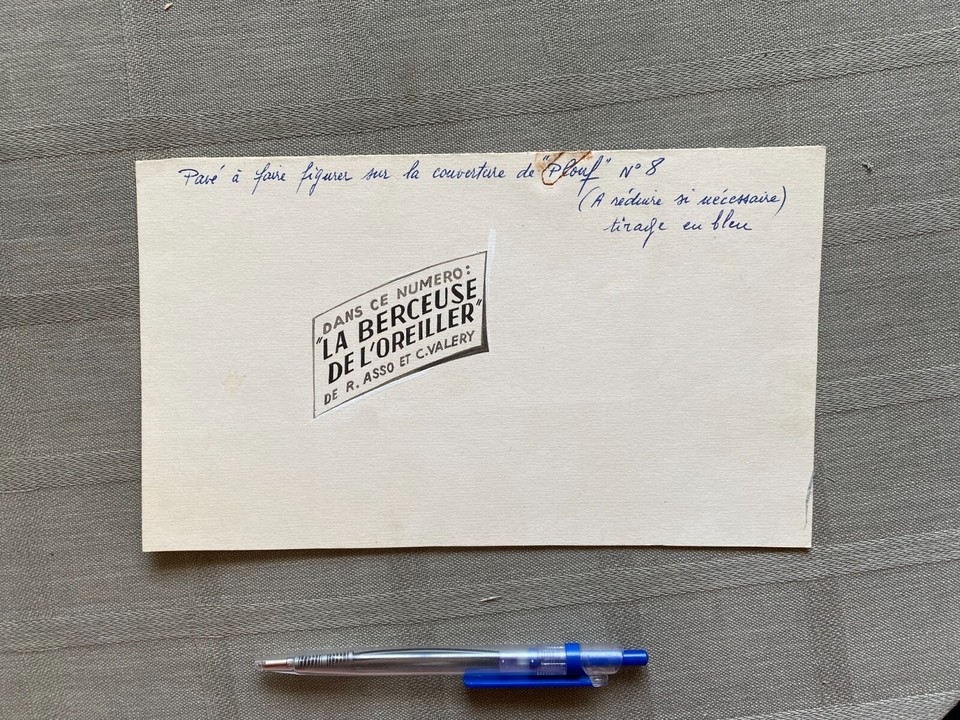 Pavé à faire figurer sur la couverture de "Plouf" N° 8
(A réduire si nécessaire)
tirage en bleu
DANS CE NUMERO:
"LA BERCEUSE
DE L'OREILLER"
DE R. ASSO ET C.VALERY